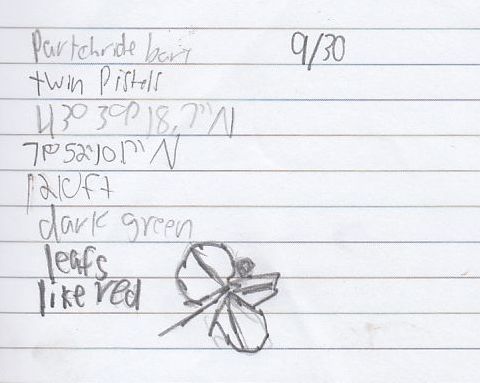 Partchride bary 9/30
twin Pistils
43° 39' 18.7" N
7
1210ft
dark green
leafs
like red